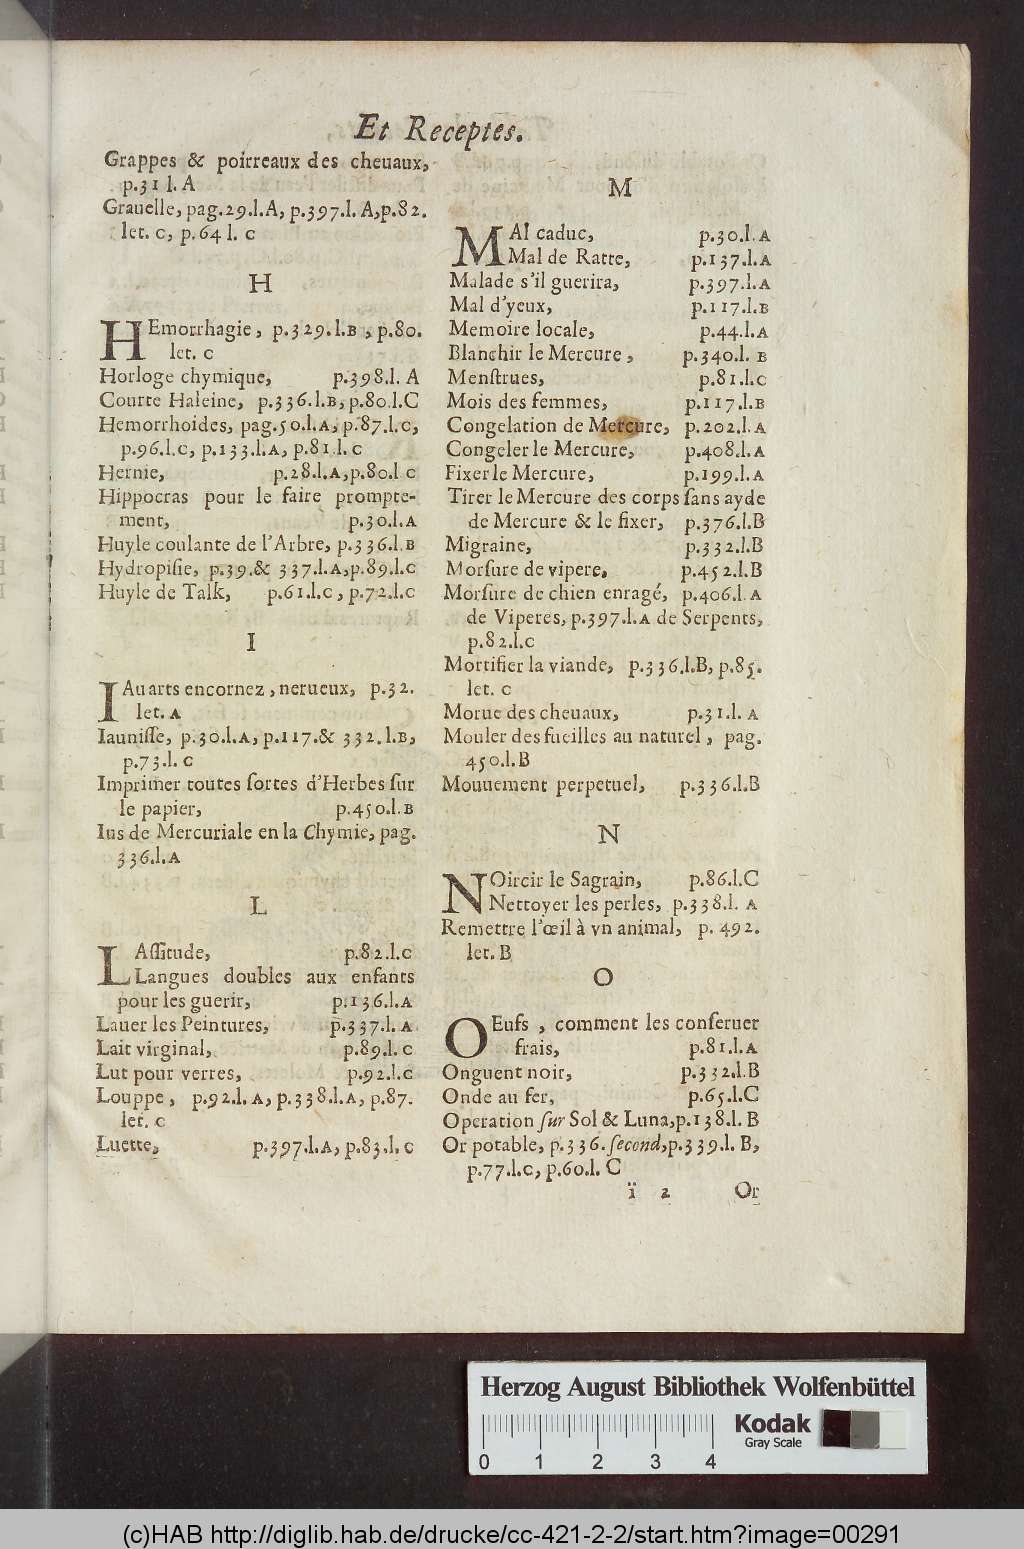 Et Receptes.
Grappes & poirreaux des cheuaux,
p.31 l. A
Grauelle, pag.29.l.A, p.397.l. A,p.82.
let. c, p.64 l. c
H
HEmorrhagie, p.329.l.B, p.80.
let. c
Horloge chymique, p.398.l. A
Courte Haleine, p.336.l.B, p.80.l.C
Hemorrhoides, pag.50.l.A, p.87.l.c,
p.96.l.c, p.133.l.A, p.81.l. c
Hernie, p.28.l.A,p.80.l c
Hippocras pour le faire prompte-
ment, p.30.l.A
Huyle coulante de l'Arbre, p.336.l.B
Hydropiſie, p.39.& 337.l.A,p.89.l.c
Huyle de Talk, p.61.l.c, p.72.l.c
I
IAuarts encornez, nerueux, p.32.
let. A
Iauniſſe, p.30.l.A, p.117.& 332.l.B,
p.73.l. c
Imprimer toutes ſortes d'Herbes ſur
le papier, p.450.l.B
Ius de Mercuriale en la Chymie, pag.
336.l.A
L
LAſſitude, p.82.l.c
Langues doubles aux enfants
pour les guerir, p.136.l.A
Lauer les Peintures, p.337.l. A
Lait virginal, p.89.l. c
Lut pour verres, p.92.l.c
Louppe, p.92.l. A, p.338.l.A, p.87.
let. c
Luette, p.397.l.A, p.83.l. c
M
MAl caduc, p.30.l. A
Mal de Ratte, p.137.l.A
Malade s'il guerira, p.397.l.A
Mal d'yeux, p.117.l.B
Memoire locale, p.44.l.A
Blanchir le Mercure, p.340.l. B
Menſtrues, p.81.l.c
Mois des femmes, p.117.l.B
Congelation de Mercure, p.202.l.A
Congeler le Mercure, p.408.l.A
Fixer le Mercure, p.199.l.A
Tirer le Mercure des corps ſans ayde
de Mercure & le fixer, p.376.l.B
Migraine, p.332.l.B
Morſure de vipere, p.452.l.B
Morſure de chien enragé, p.406.l.A
de Viperes, p.397.l.A de Serpents,
p.82.l.c
Mortifier la viande, p.336.l.B, p.85.
let. c
Morue des cheuaux, p.31.l. A
Mouler des fueilles au naturel, pag.
450.l.B
Mouuement perpetuel, p.336.l.B
N
NOircir le Sagrain, p.86.l.C
Nettoyer les perles, p.338.l. A
Remettre l'œil à vn animal, p. 492.
let. B
O
OEufs, comment les conſeruer
frais, p.81.l.A
Onguent noir, p.332.l.B
Onde au fer, p.65.l.C
Operation ſur Sol & Luna,p.138.l. B
Or potable, p.336. ſecond,p.339.l. B,
p.77.l.c, p.60.l. C
ï 2 Or
Herzog August Bibliothek Wolfenbüttel
Kodak
Gray Scale
0 1 2 3 4
(c)HAB http://diglib.hab.de/drucke/cc-421-2-2/start.htm?image=00291